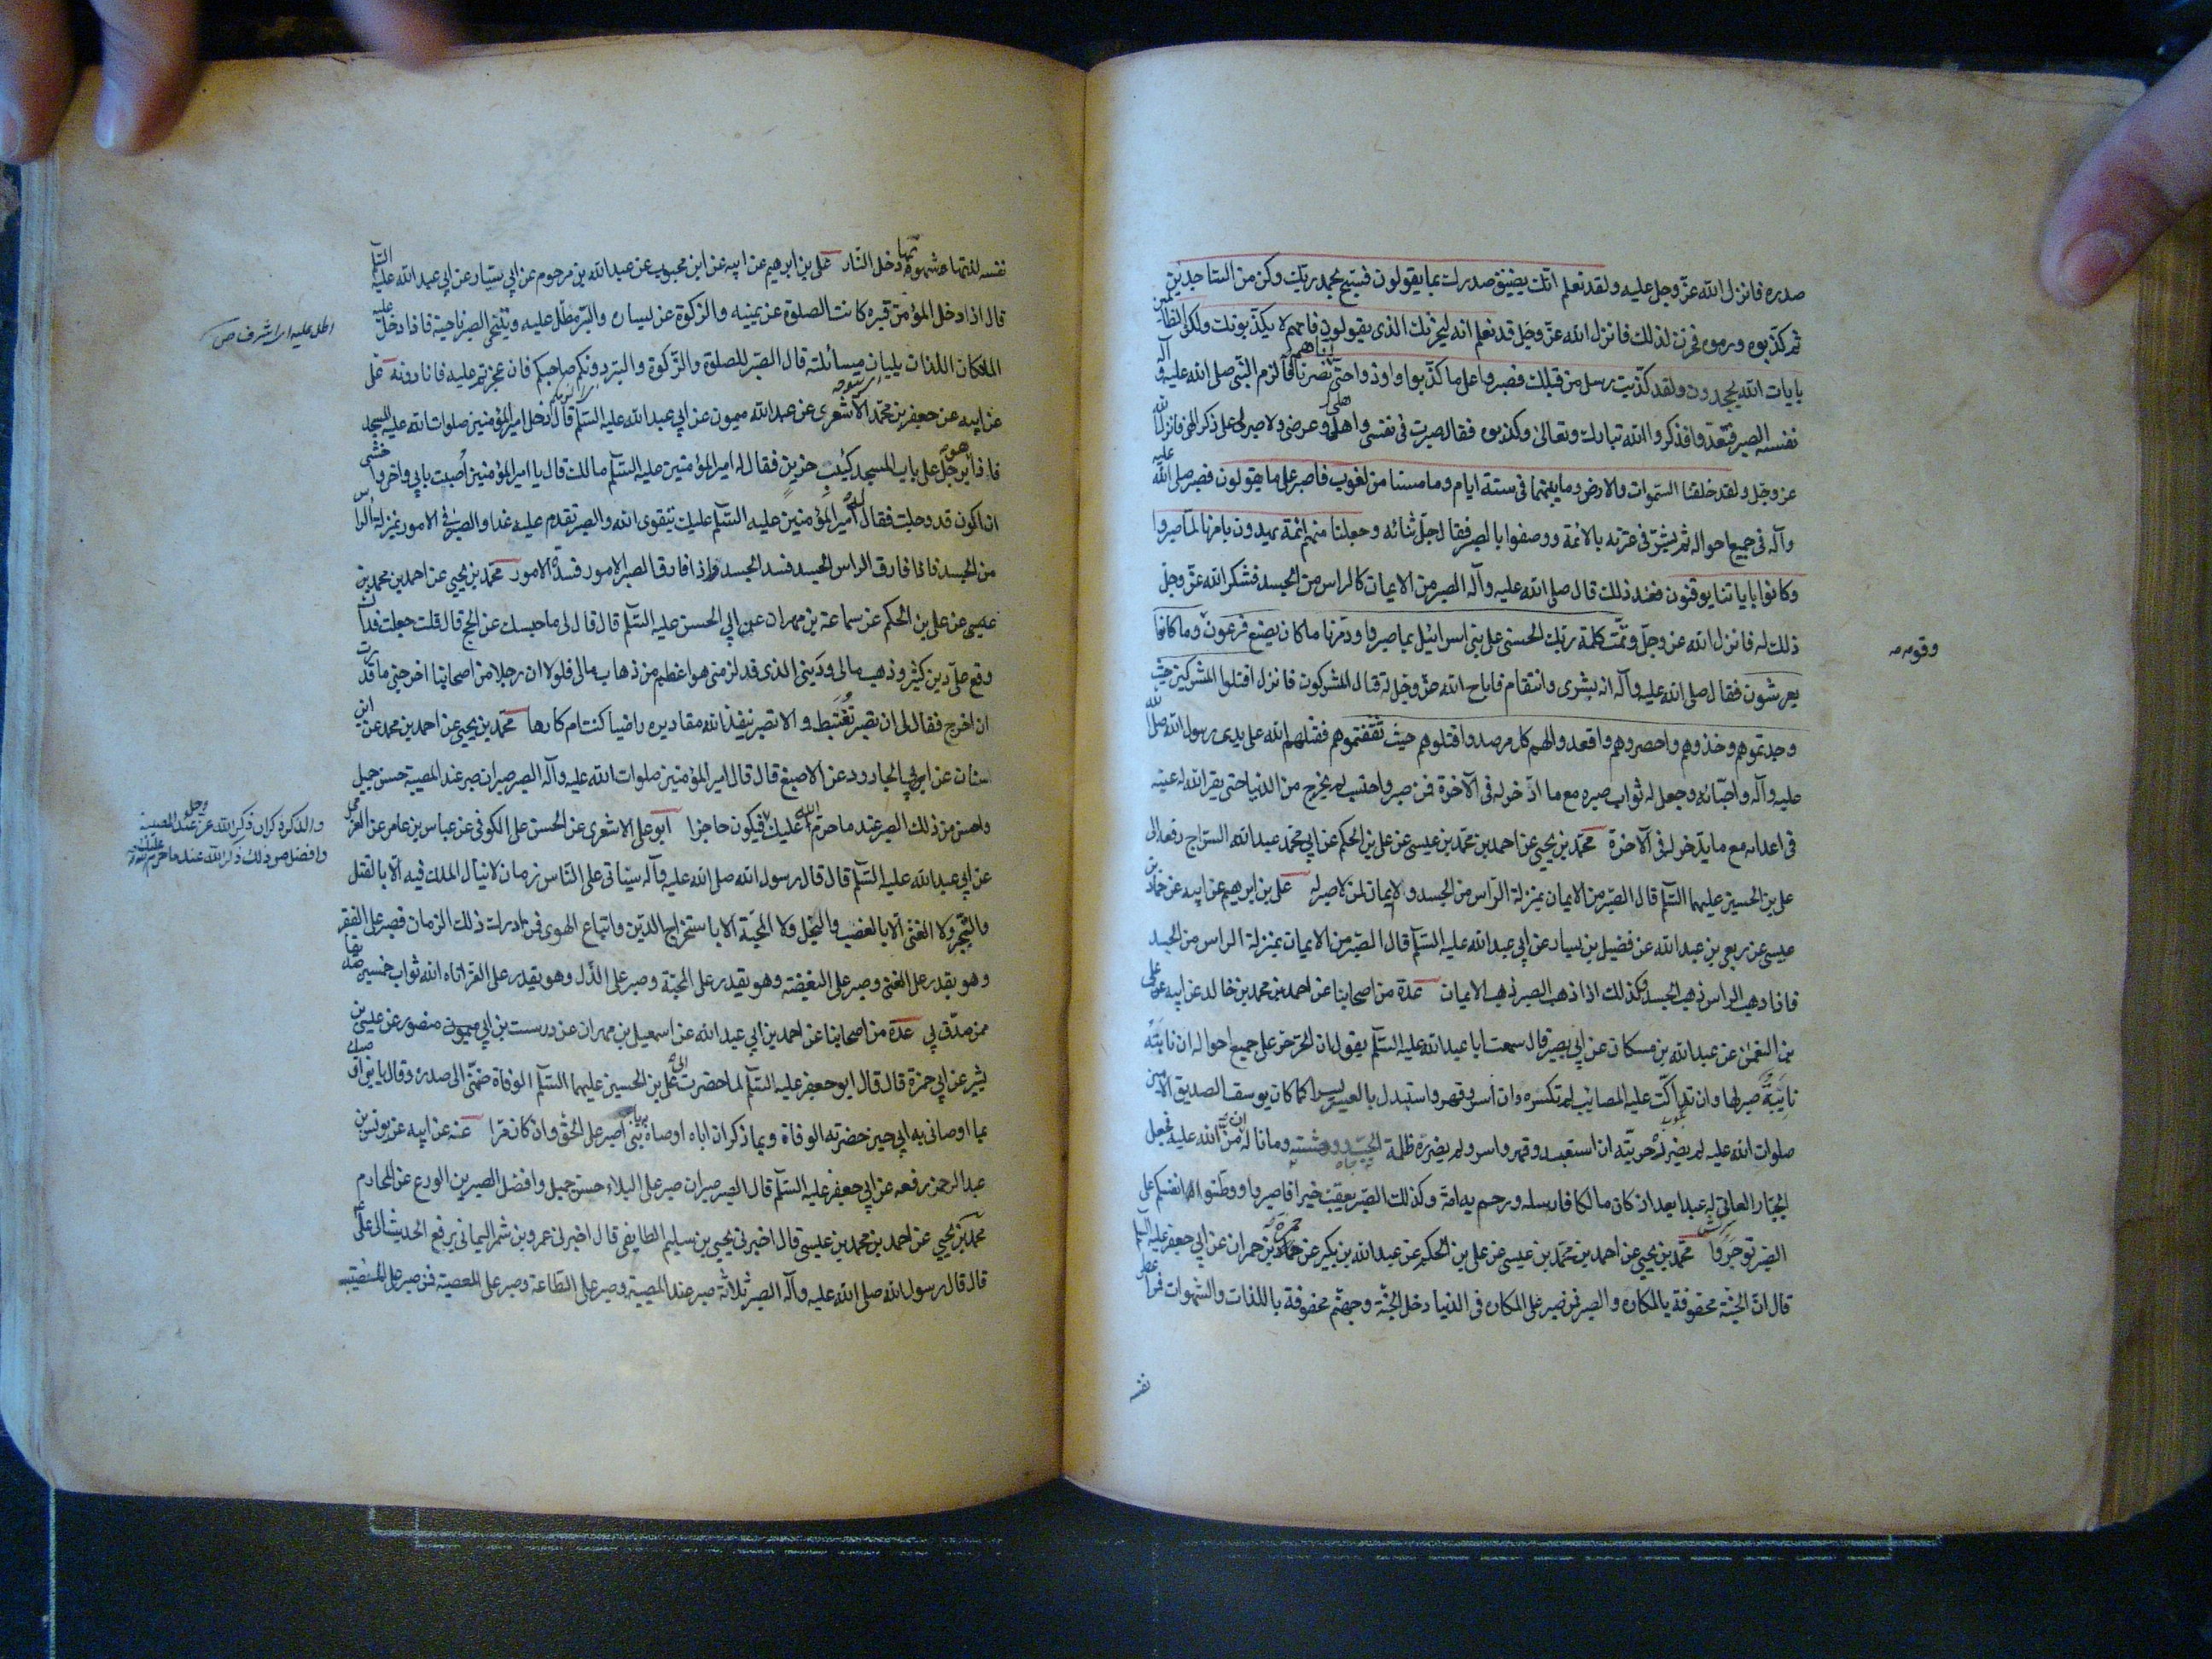 صدره فانزل الله عزّ وجل عليه ولقد نعلم انك يضيق صدرك بما يقولون فسبح بحمد ربك وكن من الساجدين
ثم كذّبوه ورموه فحزن لذلك فانزل الله عزّ وجل قد نعلم انه ليحزنك الذى يقولون فانهم لا يكذبونك ولكن الظالمين
بايات الله يجحدون ولقد كذبت رسل من قبلك فصبروا على ما كذبوا واوذوا حتى اتاهم نصرنا فالزم النبى صلى الله عليه وآله
نفسه الصبر فتعدوا فذكروا الله تبارك وتعالى وكذبوه فقال صبرت فى نفسى واهلى وعرضى ولا صبر لى على ذكر الهى فانزل الله
عز وجل ولقد خلقنا السموات والارض وما بينهما فى ستة ايام وما مسنا من لغوب فاصبر على ما يقولون فصبر صلى الله عليه
وآله فى جميع احواله ثم بشر فى عترته بالائمة ووصفوا بالصبر فقال جل ثنائه وجعلنا منهم ائمة يهدون بامرنا لما صبروا
وكانوا باياتنا يوقنون فعند ذلك قال صلى الله عليه وآله الصبر من الايمان كالراس من الجسد فشكر الله عزّ وجل
ذلك له فانزل الله عز وجل وتمت كلمة ربك الحسنى على بنى اسرائيل بما صبروا ودمرنا ما كان يصنع فرعون وما كانوا
وقومه
يعرشون فقال صلى الله عليه وآله انه بشرى وانتقام فاباح الله عز وجل له قتال المشركين فانزل اقتلوا المشركين حيث
وجدتموهم وخذوهم واحصروهم واقعدوا لهم كل مرصد واقتلوهم حيث ثقفتموهم فقتلهم الله على يدى رسول الله صلى الله
عليه وآله واحبائه وجعل له ثواب صبره مع ما ادخر له فى الآخرة فمن صبر واحتسب لم يخرج من الدنيا حتى يقر الله له عينه
فى اعدائه مع ما يدخر له فى الآخرة محمد بن يحيى عن احمد بن محمد بن عيسى عن على بن الحكم عن ابى محمد عبد الله السراج رفعه الى
على بن الحسين عليهما السلم قال الصبر من الايمان بمنزلة الراس من الجسد ولا ايمان لمن لا صبر له على بن ابرهيم عن ابيه عن حماد بن
عيسى عن ربعى بن عبد الله عن فضيل بن يسار عن ابى عبد الله عليه السلم قال الصبر من الايمان بمنزلة الراس من الجسد
فاذا ذهب الراس ذهب الجسد وكذلك اذا ذهب الصبر ذهب الايمان عدة من اصحابنا عن احمد بن محمد بن خالد عن ابيه عن على
بن النعمن عن عبد الله بن مسكان عن ابى بصير قال سمعت ابا عبد الله عليه السلم يقول ان الحر حر على جميع احواله ان نابته
نايبة صبر لها وان تداكت عليه المصائب لم تكسره وان اسر وقهر واستبدل باليسر عسرا كما كان يوسف الصديق الامين
صلوات الله عليه لم يضرر حريته ان استعبد وقهر واسر ولم يضرره ظلمة الجب ووحشته وما ناله ان من الله عليه فجعل
الجبار العاتى له عبدا بعد اذ كان مالكا فارسله ورحم به امة وكذلك الصبر يعقب خيرا فاصبروا ووطنوا انفسكم على
الصبر توجروا محمد بن يحيى عن احمد بن محمد بن عيسى عن على بن الحكم عن عبد الله بن بكير عن حمزة بن حمران عن ابى جعفر عليه السلم
قال ان الجنة محفوفة بالمكاره والصبر فمن صبر على المكاره فى الدنيا دخل الجنة وجهنم محفوفة باللذات والشهوات فمن اعطى
نفسه
نفسه لذتها وشهوتها دخل النار على بن ابرهيم عن ابيه عن ابن محبوب عن عبد الله بن مرحوم عن ابى سيار عن ابى عبد الله عليه السلم
قال اذا دخل المؤمن قبره كانت الصلوة عن يمينه والزكوة عن يساره والبر مطل عليه ويتنحى الصبر ناحية فاذا دخل عليه
الملكان اللذان يليان مسائلته قال الصبر للصلوة والزكوة والبر دونكم صاحبكم فان عجزتم عليه فانا دونه على
عن ابيه عن جعفر بن محمد الاشعرى عن عبد الله ميمون عن ابى عبد الله عليه السلم قال دخل امير المؤمنين صلوات الله عليه المسجد
فاذا هو برجل على باب المسجد كئيب حزين فقال له امير المؤمنين عليه السلم مالك قال يا امير المؤمنين اصبت بابى واخى واخشى
ان اكون قد وجلت فقال له امير المؤمنين عليه السلم عليك بتقوى الله والصبر تقدم عليه غدا والصبر فى الامور بمنزلة الراس
من الجسد فاذا فارق الراس الجسد فسد الجسد واذا فارق الصبر الامور فسدت الامور محمد بن يحيى عن احمد بن محمد بن
عيسى عن على بن الحكم عن سماعة بن مهران عن ابى الحسن عليه السلم قال قال لى ما حبسك عن الحج قال قلت جعلت فداك
وقع على دين كثير وذهب مالى ودينى الذى قد لزمنى هو اعظم من ذهاب مالى فلولا ان رجلا من اصحابنا اخرجنى ما قدرت
ان اخرج فقال لى ان تصبر تغتبط والا تصبر ينفذ الله مقاديره راضيا كنت ام كارها محمد بن يحيى عن احمد بن محمد عن ابن
سنان عن ابى الجارود عن الاصبغ قال قال امير المؤمنين صلوات الله عليه وآله الصبر صبران صبر عند المصيبة حسن جميل
واحسن من ذلك الصبر عند ما حرم الله عليك فيكون حاجزا ابو على الاشعرى عن الحسن على الكوفى عن عباس بن عامر عن العزرمى
والذكر ذكران ذكر الله عز وجل عند المصيبة
وافضل من ذلك ذكر الله عند ما حرم الله عليك
عن ابى عبد الله عليه السلم قال قال رسول الله صلى الله عليه وآله سيأتى على الناس زمان لا ينال الملك فيه الا بالقتل
والتجبر ولا الغنى الا بالغصب والبخل ولا المحبة الا باستخراج الدين واتباع الهوى فمن ادرك ذلك الزمان فصبر على الفقر
وهو يقدر على الغنى وصبر على البغضة وهو يقدر على المحبة وصبر على الذل وهو يقدر على العز اتاه الله ثواب خمسين صديقا
ممن صدق بى عدة من اصحابنا عن احمد بن ابى عبد الله عن اسمعيل بن مهران عن درست بن ابى منصور عن عيسى بن
بشير عن ابى حمزة قال قال ابو جعفر عليه السلم لما حضرت ابى على بن الحسين عليهما السلم الوفاة ضمنى الى صدره وقال يا بنى اوصيك
بما اوصانى به ابى حين حضرته الوفاة وبما ذكر ان اباه اوصاه به يا بنى اصبر على الحق وان كان مرا عنه عن ابيه عن يونس بن
عبد الرحمن رفعه عن ابى جعفر عليه السلم قال الصبر صبران صبر على البلاء حسن جميل وافضل الصبرين الورع عن المحارم
محمد بن يحيى عن احمد بن محمد بن عيسى قال اخبرنى يحيى بن سليم الطايفى قال اخبرنى عمرو بن شمر اليمانى يرفع الحديث الى على
قال قال رسول الله صلى الله عليه وآله الصبر ثلاثة صبر عند المصيبة وصبر على الطاعة وصبر على المعصية فمن صبر على المصيبة